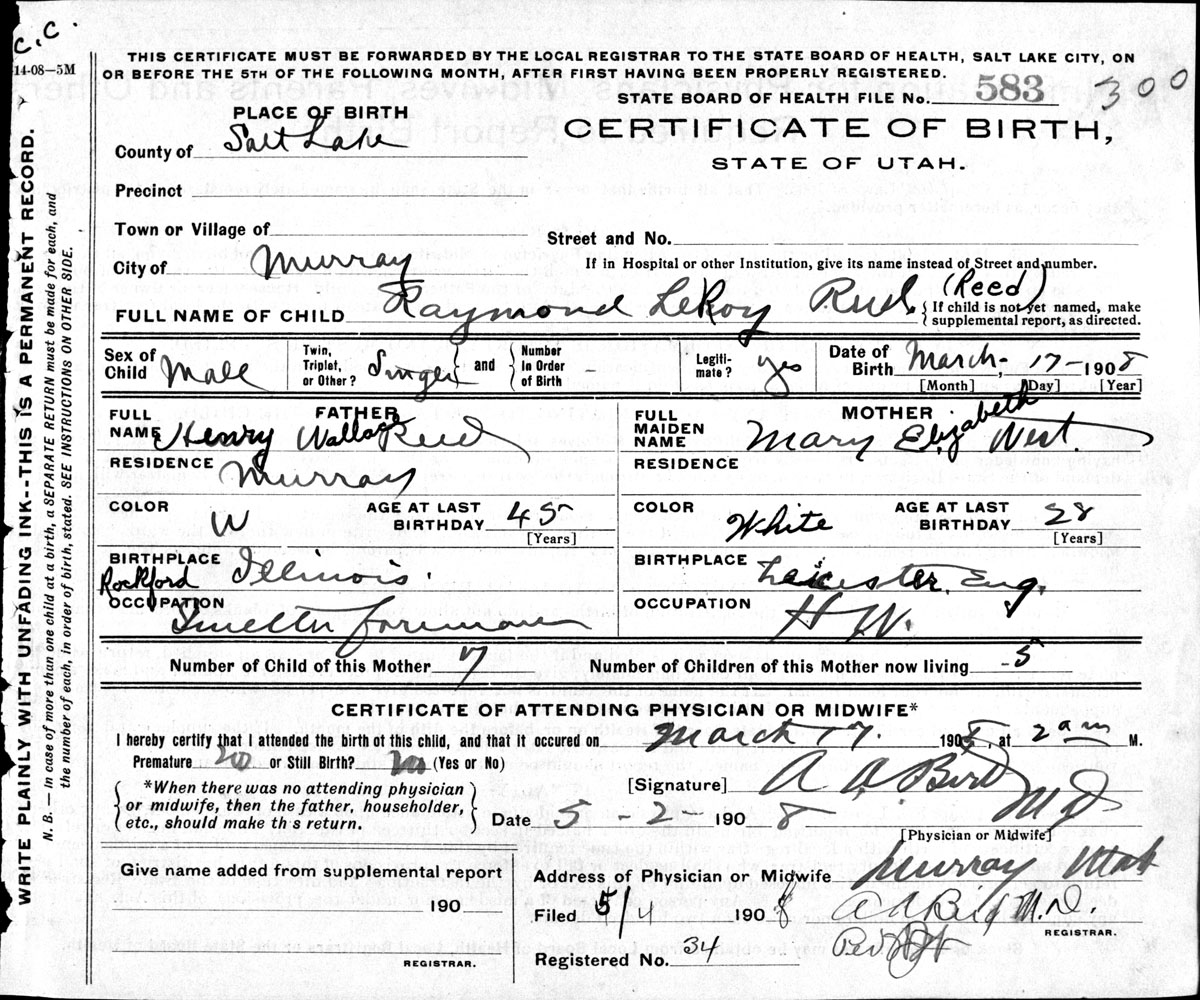 C.C.
14-08-5M
THIS CERTIFICATE MUST BE FORWARDED BY THE LOCAL REGISTRAR TO THE STATE BOARD OF HEALTH, SALT LAKE CITY, ON
OR BEFORE THE 5TH OF THE FOLLOWING MONTH, AFTER FIRST HAVING BEEN PROPERLY REGISTERED.
STATE BOARD OF HEALTH FILE No. 583 300
PLACE OF BIRTH
CERTIFICATE OF BIRTH,
STATE OF UTAH.
County of Salt Lake
Precinct
Town or Village of
Street and No.
City of Murray
If in Hospital or other Institution, give its name instead of Street and number.
FULL NAME OF CHILD Raymond LeRoy Reid. (Reed)
{ If child is not yet named, make
supplemental report, as directed.
Sex of Child Male
Twin, Triplet, or Other? Single } and { Number In Order of Birth
Legiti-mate? yes
Date of Birth March, 17-1908
[Month] [Day] [Year]
FATHER
FULL NAME Henry Wallace Reid
MOTHER
FULL MAIDEN NAME Mary Elizabeth West
RESIDENCE Murray
RESIDENCE
COLOR W AGE AT LAST BIRTHDAY 45
[Years]
COLOR White AGE AT LAST BIRTHDAY 28
[Years]
BIRTHPLACE Rockford Illinois.
BIRTHPLACE Leicester, Eng.
OCCUPATION Smelter foreman
OCCUPATION H W.
Number of Child of this Mother 7
Number of Children of this Mother now living 5
CERTIFICATE OF ATTENDING PHYSICIAN OR MIDWIFE*
I hereby certify that I attended the birth of this child, and that it occured on March 17. 1908, at 2 am M.
Premature no or Still Birth? no (Yes or No)
[Signature] A. A. Bird
M D
{ *When there was no attending physician
or midwife, then the father, householder,
etc., should make this return. }
Date 5 - 2 - 1908
[Physician or Midwife]
Give name added from supplemental report
190
REGISTRAR.
Address of Physician or Midwife Murray Utah
Filed 5/4 1908 A A Bird M.D.
REGISTRAR.
Registered No. 34
WRITE PLAINLY WITH UNFADING INK--THIS IS A PERMANENT RECORD.
N. B.—In case of more than one child at a birth, a SEPARATE RETURN must be made for each, and
the number of each, in order of birth, stated. SEE INSTRUCTIONS ON OTHER SIDE.